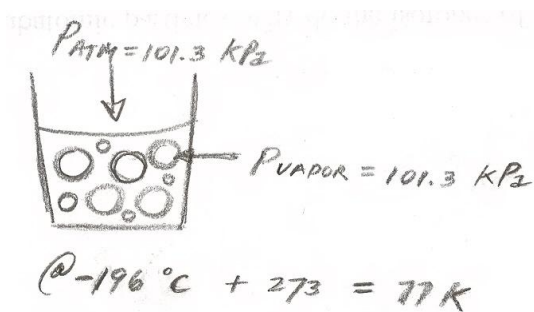 PATM = 101.3 KPa
PVAPOR = 101.3 KPa
@ -196 °C + 273 = 77K